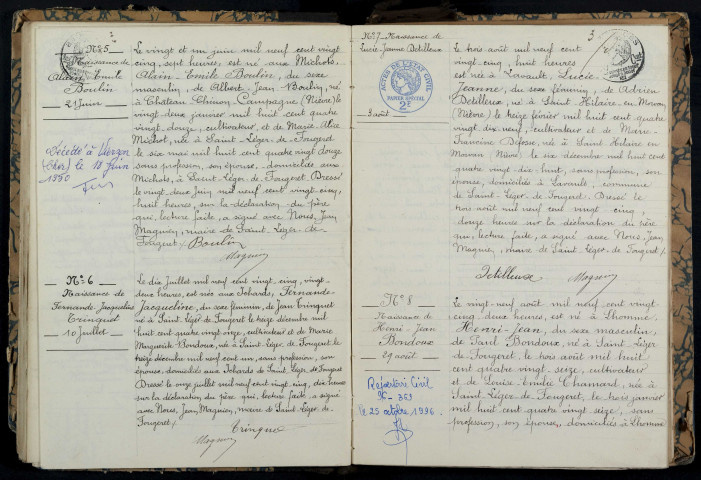 N°5
Naissance de
Alain-Emile
Boulin
21 Juin
Décédé à Vierzon
(Cher) le 18 Juin
1980
Le vingt et un juin mil neuf cent vingt
cinq, sept heures, est né aux Michots,
Alain-Emile Boulin, du sexe
masculin, de Albert-Jean Boulin, né
à Château-Chinon-Campagne (Nièvre) le
vingt deux janvier mil huit cent quatre
vingt douze, cultivateur, et de Marie Alice
Michot, née à Saint-Léger-de-Fougeret
le six mai mil huit cent quatre vingt douze
sans profession, son épouse, domiciliés aux
Michots, à Saint-Léger de Fougeret. Dressé
le vingt deux juin mil neuf cent vingt cinq,
huit heures, sur la déclaration du père
qui, lecture faite, a signé avec Nous, Jean
Magnien, maire de Saint-Léger-de-
Fougeret /.
Boulin
N°6
Naissance de
Fernande Jacqueline
Tringuet
10 Juillet
Le dix Juillet mil neuf cent vingt-cinq, vingt-
deux heures, est née aux Jobards, Fernande-
Jacqueline, du sexe féminin, de Jean Tringuet
né à Saint Léger de Fougeret le treize décembre mil
huit cent quatre vingt onze, cultivateur et de Marie
Marguerite Bondoux, née à Saint-Léger de Fougeret le
treize décembre mil neuf cent un, sans profession, son
épouse, domiciliés aux Jobards de Saint Léger de Fougeret
Dressé le onze juillet mil neuf cent vingt-cinq, dix heures
sur la déclaration du père qui, lecture faite, a signé
avec Nous, Jean, Magnien, maire de Saint-Léger-de-
Fougeret /.
Tringuet
3
N°7 Naissance de
Lucie-Jeanne Detilleux
3 août
ACTES DE L'ETAT CIVIL
PAPIER SPECIAL
2F
Le trois août mil neuf cent
vingt-cinq, huit heures
est née à Lavault, Lucie-
Jeanne, du sexe féminin, de Adrien
Detilleux, né à Saint-Hilaire-en-Morvan
(Nièvre) le treize février mil huit cent quatre
vingt dix-neuf, cultivateur et de Marie-
Francine née à Saint-Hilaire en
Morvan (Nièvre) le six décembre mil huit cent
quatre vingt-dix-huit, sans profession, son
épouse, domiciliés à Lavault, commune
de Saint-Léger de Fougeret. Dressé le
trois août mil neuf cent vingt cinq,
douze heures sur la déclaration du père
qui, lecture faite, a signé avec Nous, Jean
Magnien, maire de Saint-Léger de Fougeret /.
Detilleux
N°8
Naissance de
Henri-Jean
Bondoux
29 août
Repertoire Civil
96-369
le 25 octobre 1996.
Le vingt-neuf août mil neuf cent vingt
cinq, deux heures, est né à Lhomme,
Henri-Jean, du sexe masculin,
de Paul Bondoux, né à Saint-Léger
de Fougeret, le trois août mil huit
cent quatre vingt-seize, cultivateur
et de Louise Emilie Chamard, née à
Saint-Léger de Fougeret, le trois janvier
mil huit cent quatre vingt seize, sans
profession, son épouse, domiciliés à Lhomme